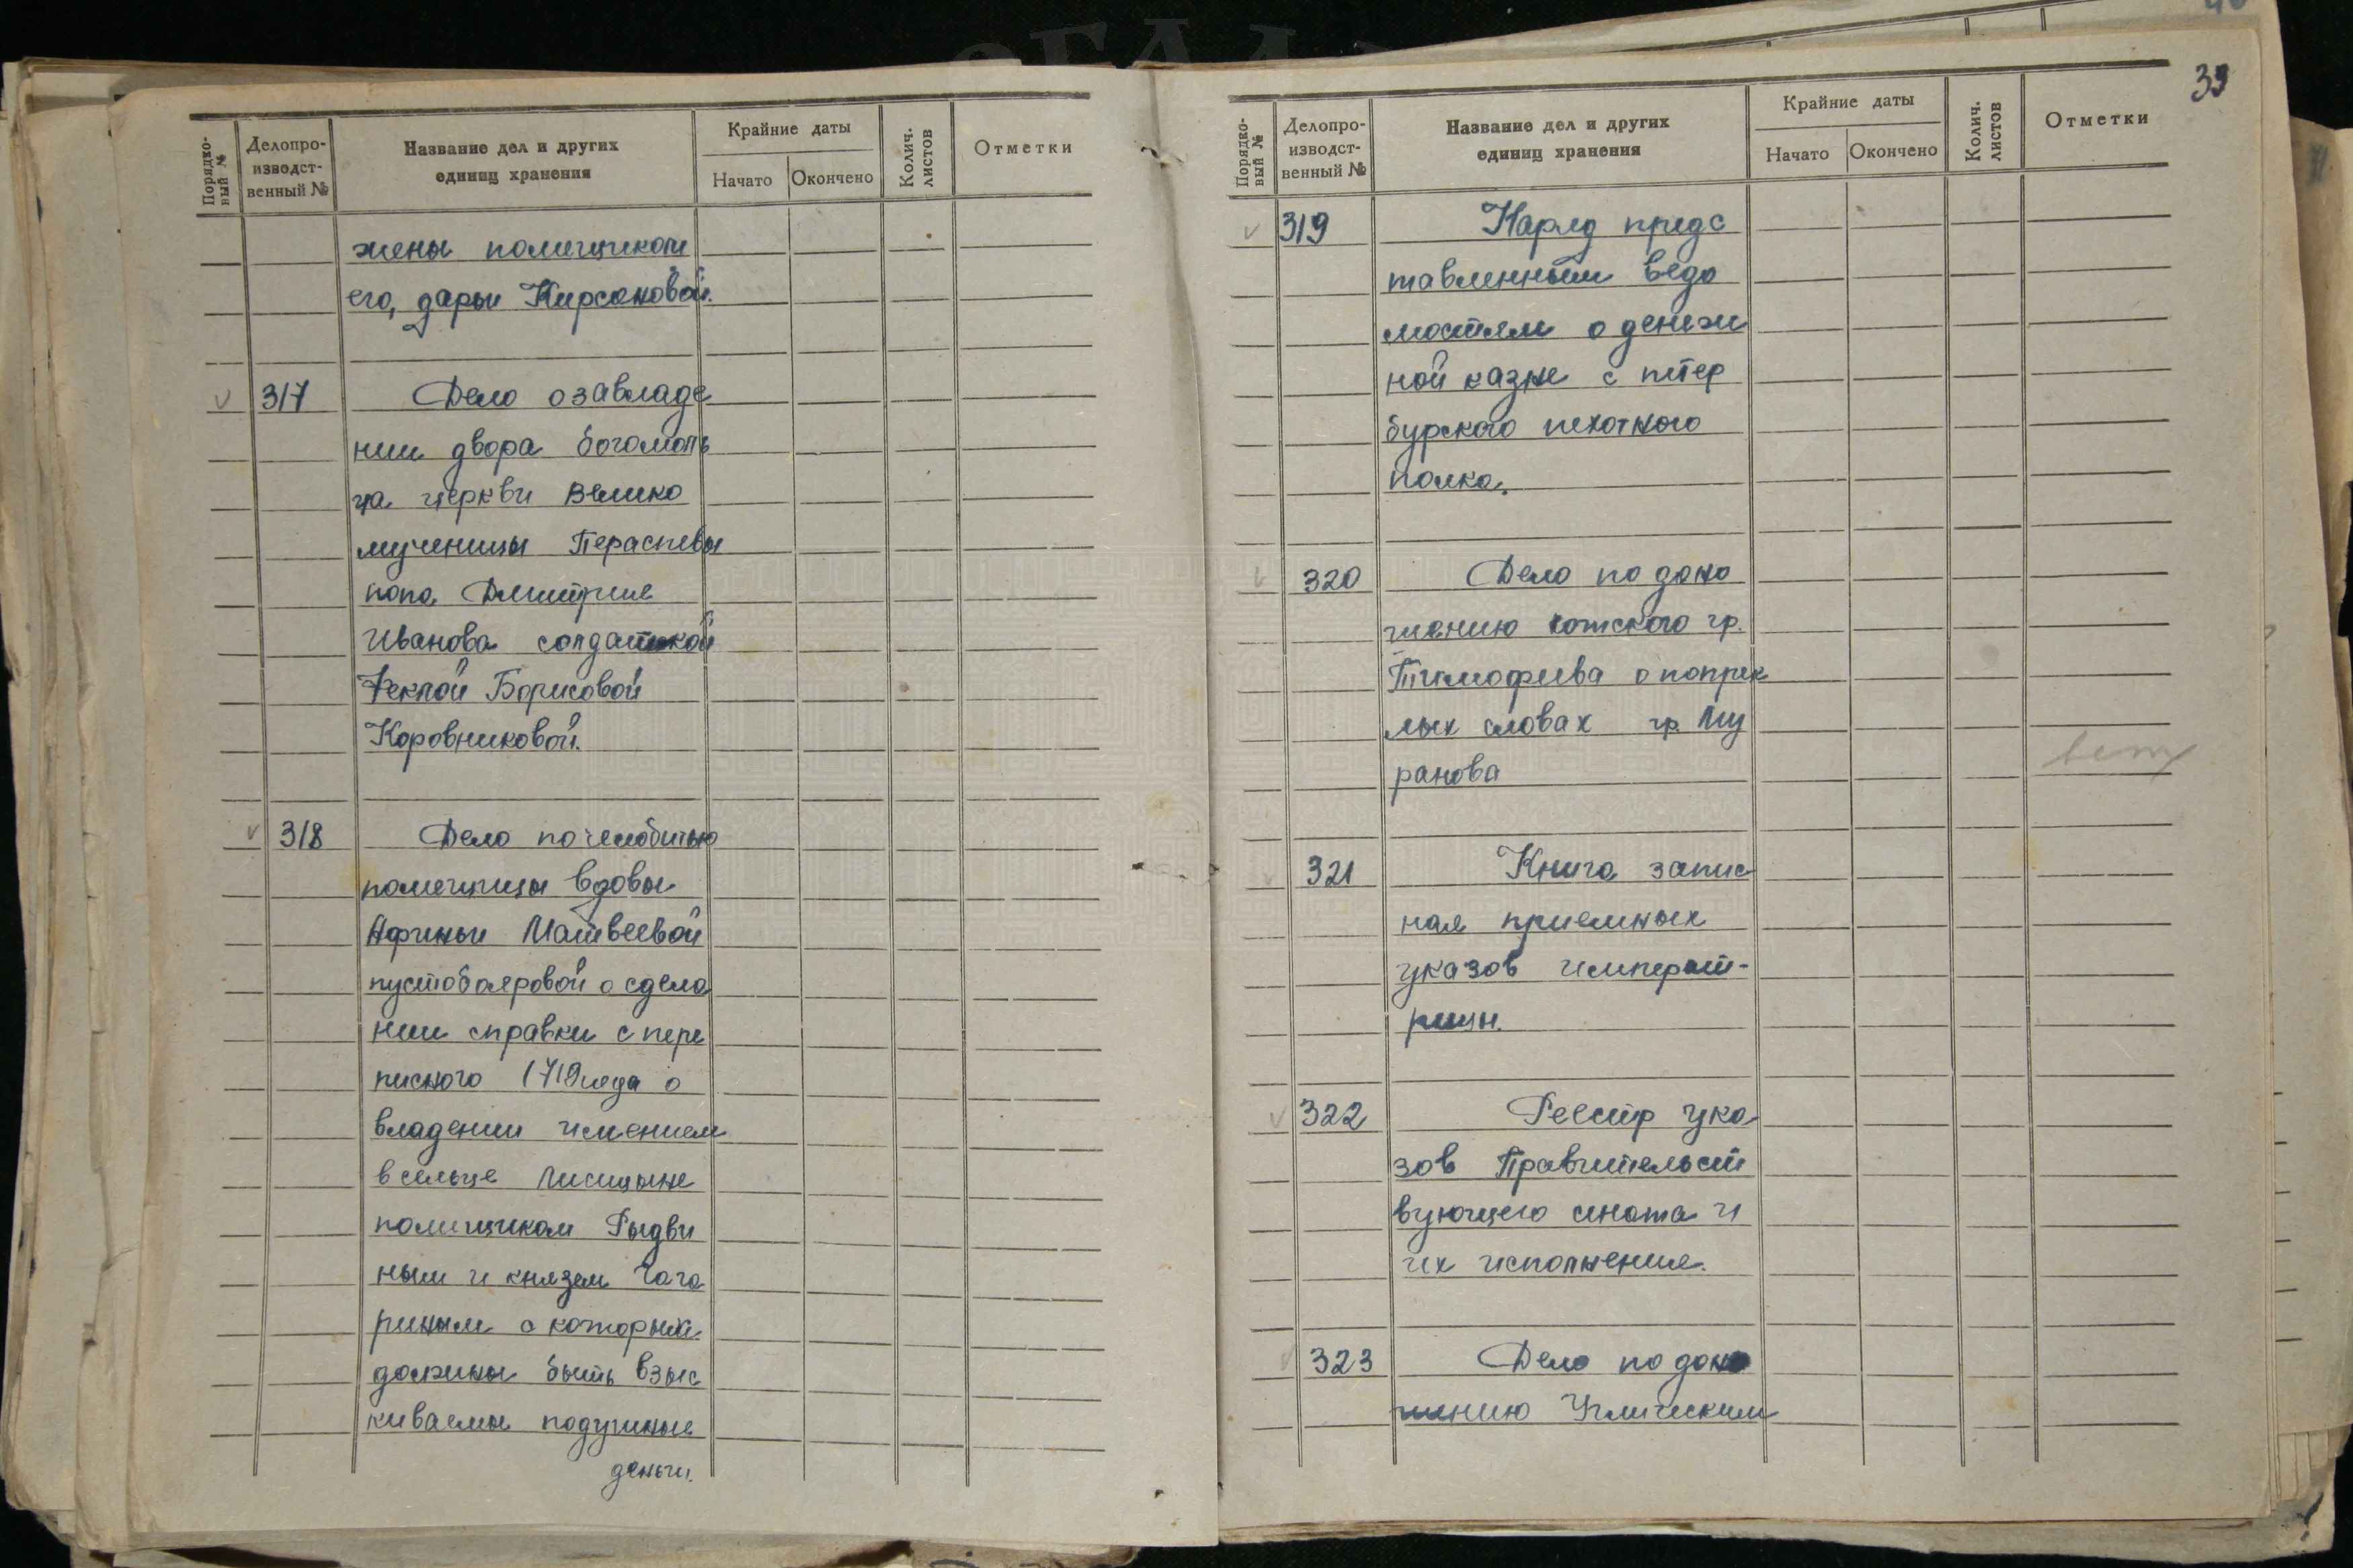 39
Порядко-
вый №
Делопро-
изводст-
венный №
Название дел и других
единиц хранения
Крайние даты
Начато
Окончено
Колич.
листов
Отметки
жены помещиком
его, дарьи Кирсановой.
317 Дело о завладе
нии двора богомоль
ца церкви Велико
мученицы Параскевы
попа Дмитрие
Иванова солдаткой
Феклой Борисовой
Коровниковой.
318 Дело по челобитью
помещицы вдовы
Афимьи Матвеевой
пустобояровой о сдела
нии справки с пере
писного 1719 года о
владении имением
в сельце Лисицыне
помещиком Рыдви
ным и князем Гага
риным с которых
должны быть взыс
киваемы подушные
деньги.
Порядко-
вый №
Делопро-
изводст-
венный №
Название дел и других
единиц хранения
Крайние даты
Начато
Окончено
Колич.
листов
Отметки
319 Наряд предс
тавленным ведо
мостям о денеж
ной казне с петер
бурского пехотного
полка.
320 Дело по доно
шению сотского гр.
Тимофеева о
словах гр. Му
ранова
321 Книга запис
ная приемных
указов императ-
рицы.
322 Реестр ука
зов Правительст
вующего сената и
их исполнение.
323 Дело по доно
шению Угличским